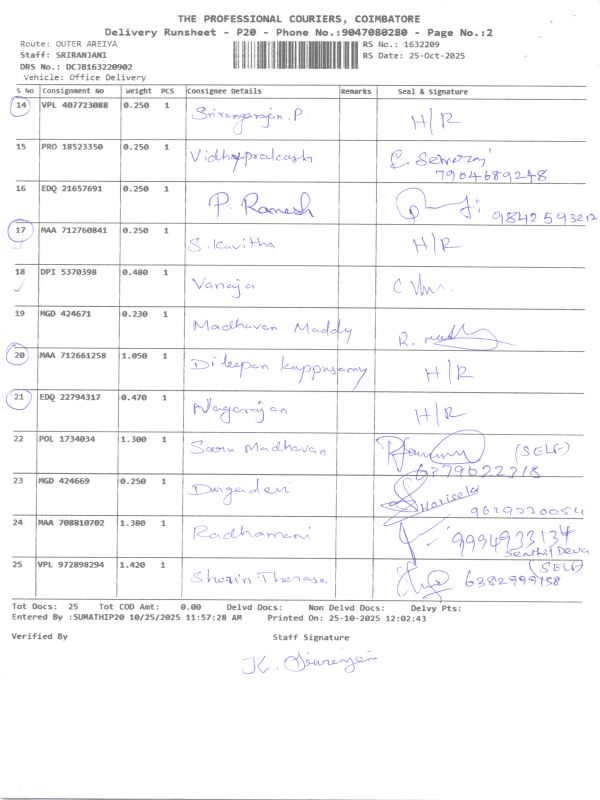 THE PROFESSIONAL COURIERS, COIMBATORE
Delivery Runsheet - P20 - Phone No.:9047080280 - Page No.:2
Route: OUTER AREIYA RS No.: 1632209
Staff: SRIRANJANI RS Date: 25-Oct-2025
DRS No.: DCJB163220902
Vehicle: Office Delivery
S No Consignment No Weight PCS Consignee Details Remarks Seal & Signature
14 VPL 407723088 0.250 1 Srirangarajan. P. H/R
15 PRO 18523350 0.250 1 Vidhyaprakash
7904689248
16 EDQ 21657691 0.250 1 P. Ramesh 9842593212
17 MAA 712760841 0.250 1 S. Kavitha H/R
18 DPI 5370398 0.480 1 Vanaja
19 MGD 424671 0.230 1 Madhavan Maddy
20 MAA 712661258 1.050 1 Dileepan Kuppusamy H/R
21 EDQ 22794317 0.470 1 Nagarajan H/R
22 POL 1734034 1.300 1 Saru Madhavan (SELF)
23 MGD 424669 0.250 1 Durgadevi
24 MAA 708810702 1.380 1 Radhamani 9994933134
Senthil Deva
25 VPL 972898294 1.420 1 Sherin Therasa (SELF)
6382999158
Tot Docs: 25 Tot COD Amt: 0.00 Delvd Docs: Non Delvd Docs: Delvy Pts:
Entered By :SUMATHIP20 10/25/2025 11:57:28 AM Printed On: 25-10-2025 12:02:43
Verified By Staff Signature